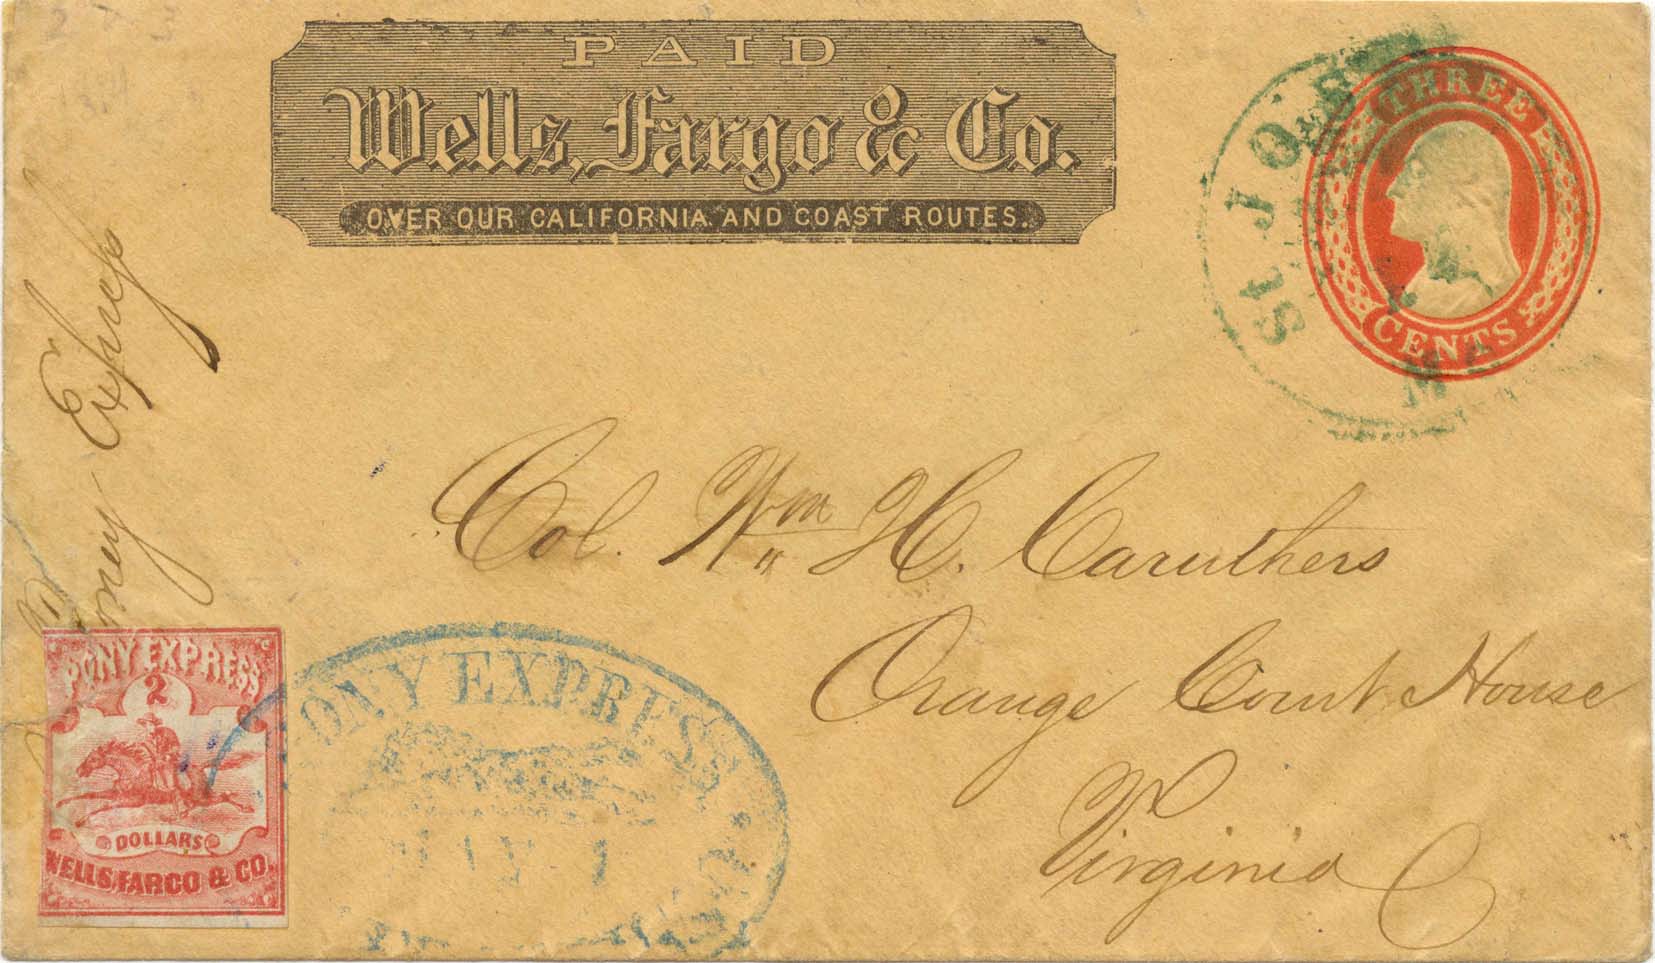 PAID
Wells, Fargo & Co.
OVER OUR CALIFORNIA AND COAST ROUTES.
THREE
CENTS
ST JOSE
Express
Col. Wm H. Caruthers
Orange Court House
Virginia
PONY EXPRESS
2
DOLLARS
WELLS, FARGO & CO.
PONY EXPRESS